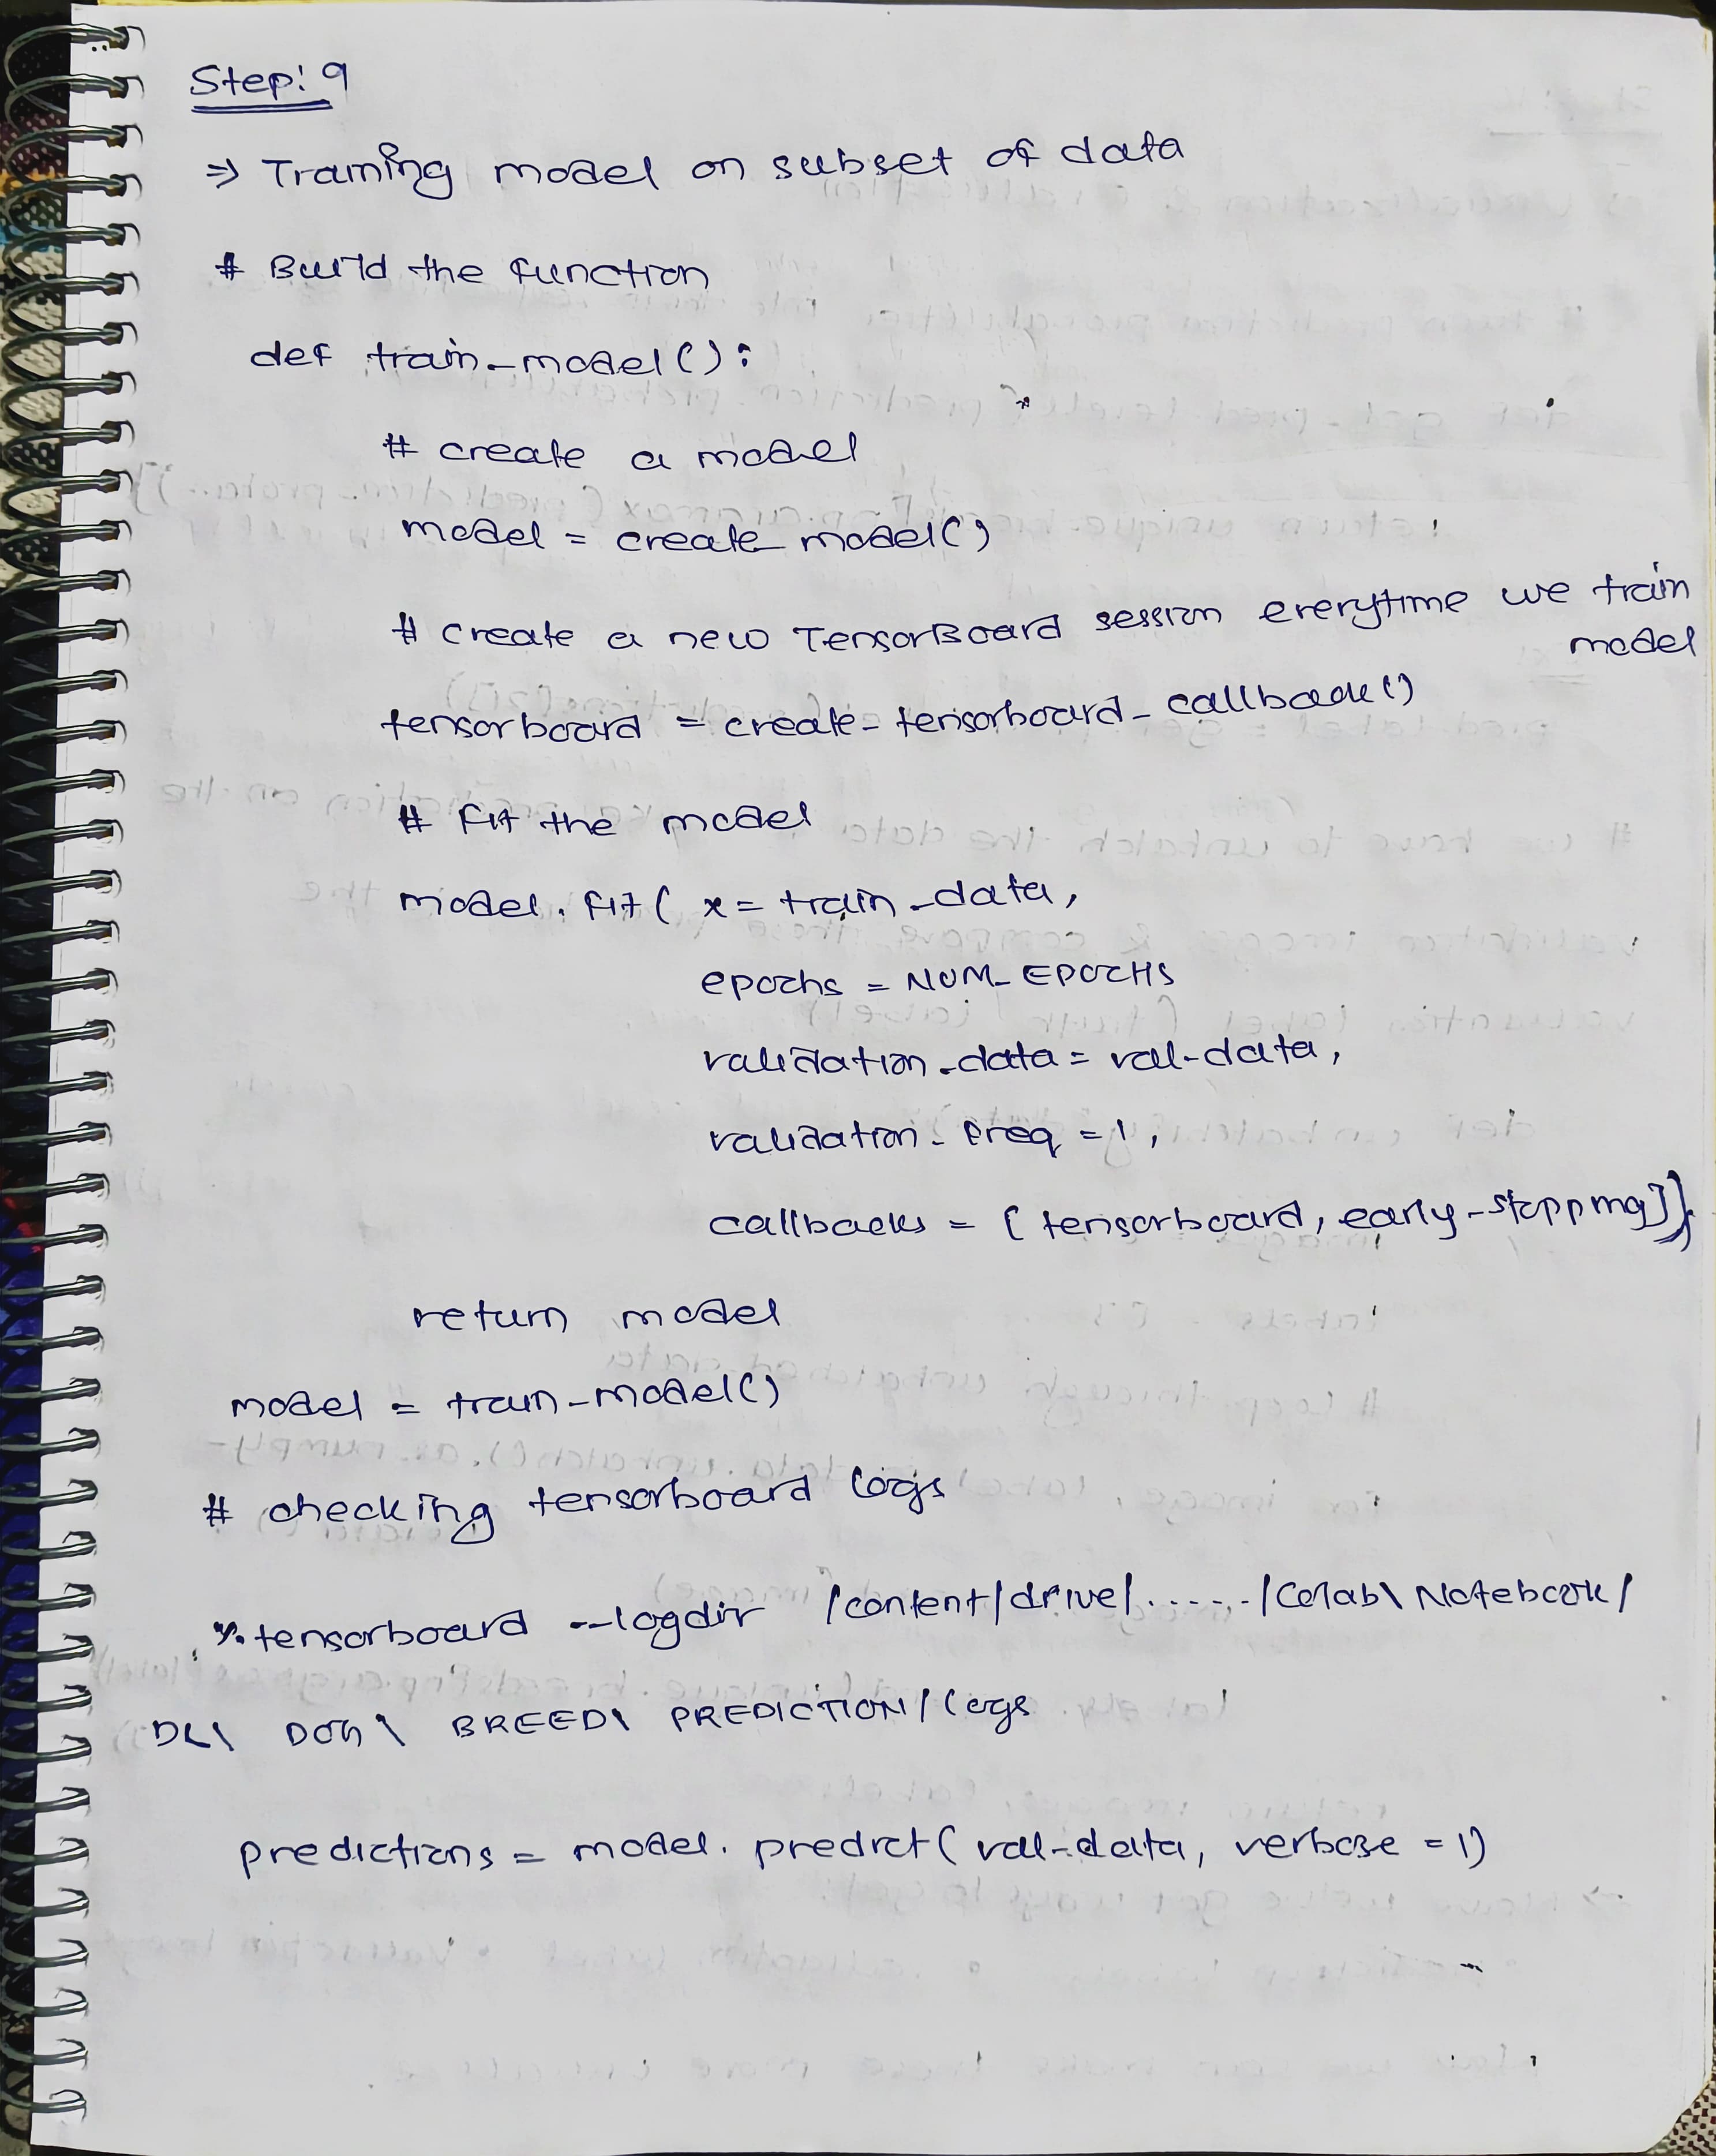 Step: 9
⇒ Training model on subset of data
# Build the function
def train_model():
# create a model
model = create_model()
# create a new TensorBoard session everytime we train
model
tensorboard = create_tensorboard_callback()
# Fit the model
model.fit( x = train_data,
epochs = NUM_EPOCHS
validation_data = val_data,
validation_freq = 1,
callbacks = [tensorboard, early_stopping])
return model
model = train_model()
# checking tensorboard logs
%tensorboard --logdir /content/drive/....../Colab\ Notebook/
DL\ DOG\ BREED\ PREDICTION/logs
predictions = model.predict(val_data, verbose = 1)